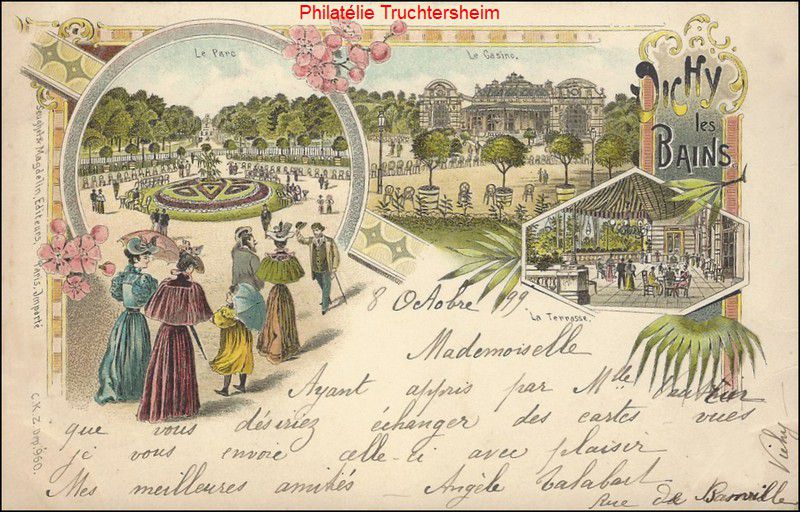 Philatélie Truchtersheim
Le Parc
Le Casino.
VICHY
les
BAINS.
La Terrasse.
Scugnet & Magdelin, Editeurs, Paris, Importé
C.K.Z. Dép! 960.
8 Octobre 99
Mademoiselle
Ayant appris par Mlle
que vous désiriez échanger des cartes - vues
je vous envoie celle-ci avec plaisir
Mes meilleures amitiés - Angèle Talabart
Rue de Banville
Vichy -